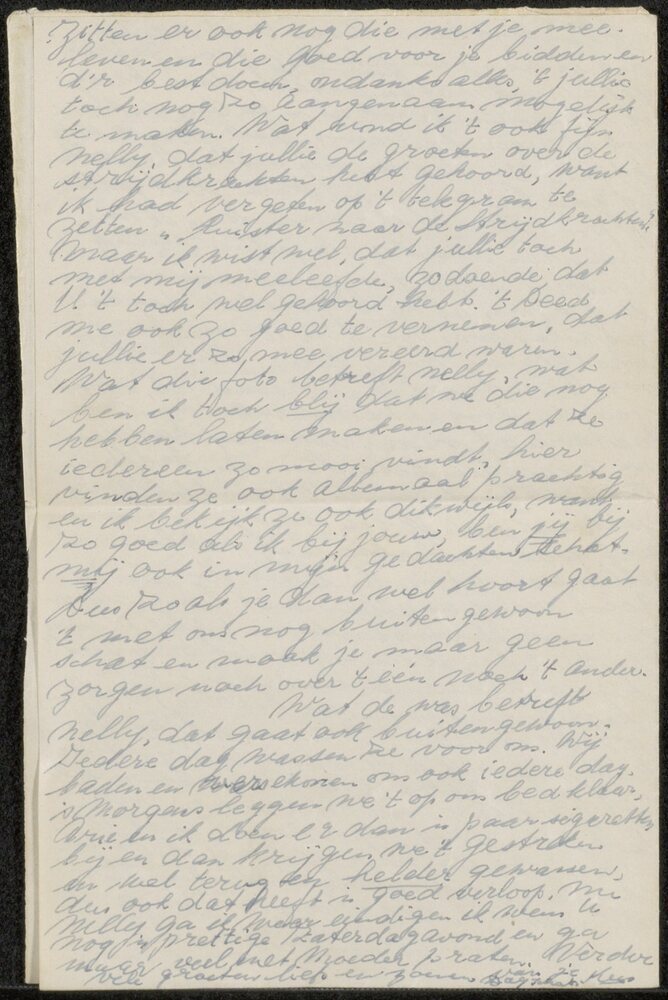 Zitten er ook nog die met je mee-
leven en die goed voor je bidden en
d'r best doen, ondanks alles, 't jullie
toch nog zo aangenaam mogelijk
te maken. Wat vond ik 't ook fijn
Nelly, dat jullie de groeten over de
strijdkrachten hebt gehoord, want
ik had vergeten op 't telegram te
zetten „Luister naar de Strijdkrachten".
Maar ik wist wel, dat jullie toch
met mij meeleefde, zodoende dat
U 't toch wel gehoord hebt. 't Deed
me ook zo goed te vernemen, dat
jullie er zo mee vereerd waren.
Wat die foto betreft Nelly, wat
ben ik toch blij dat we die nog
hebben laten maken en dat ze
iedereen zo mooi vindt, hier
vinden ze ook allemaal prachtig
en ik bekijk ze ook dikwijls, want
zo goed als ik bij jouw, ben jij bij
mij ook in mijn gedachten schat.
Dus zoals je dan wel hoort gaat
't met ons nog buitengewoon
schat en maak je maar geen
zorgen noch over 't één noch 't ander.
Wat de was betreft
Nelly, dat gaat ook buitengewoon.
Iedere dag wassen ze voor ons. Wij
baden en ons ook iedere dag.
's Morgens leggen we 't op ons bed klaar,
Arie en ik doen er dan 'n paar sigaretten
bij en dan krijgen we 't gestreken
en wel terug en helder gewassen,
dus ook dat heeft 'n goed verloop. Nu
Nelly ga ik weer eindigen ik wens U
nog 'n prettige Zaterdagavond en ga
maar veel met Moeder praten. Verder
vele groeten lief en zoenen van je